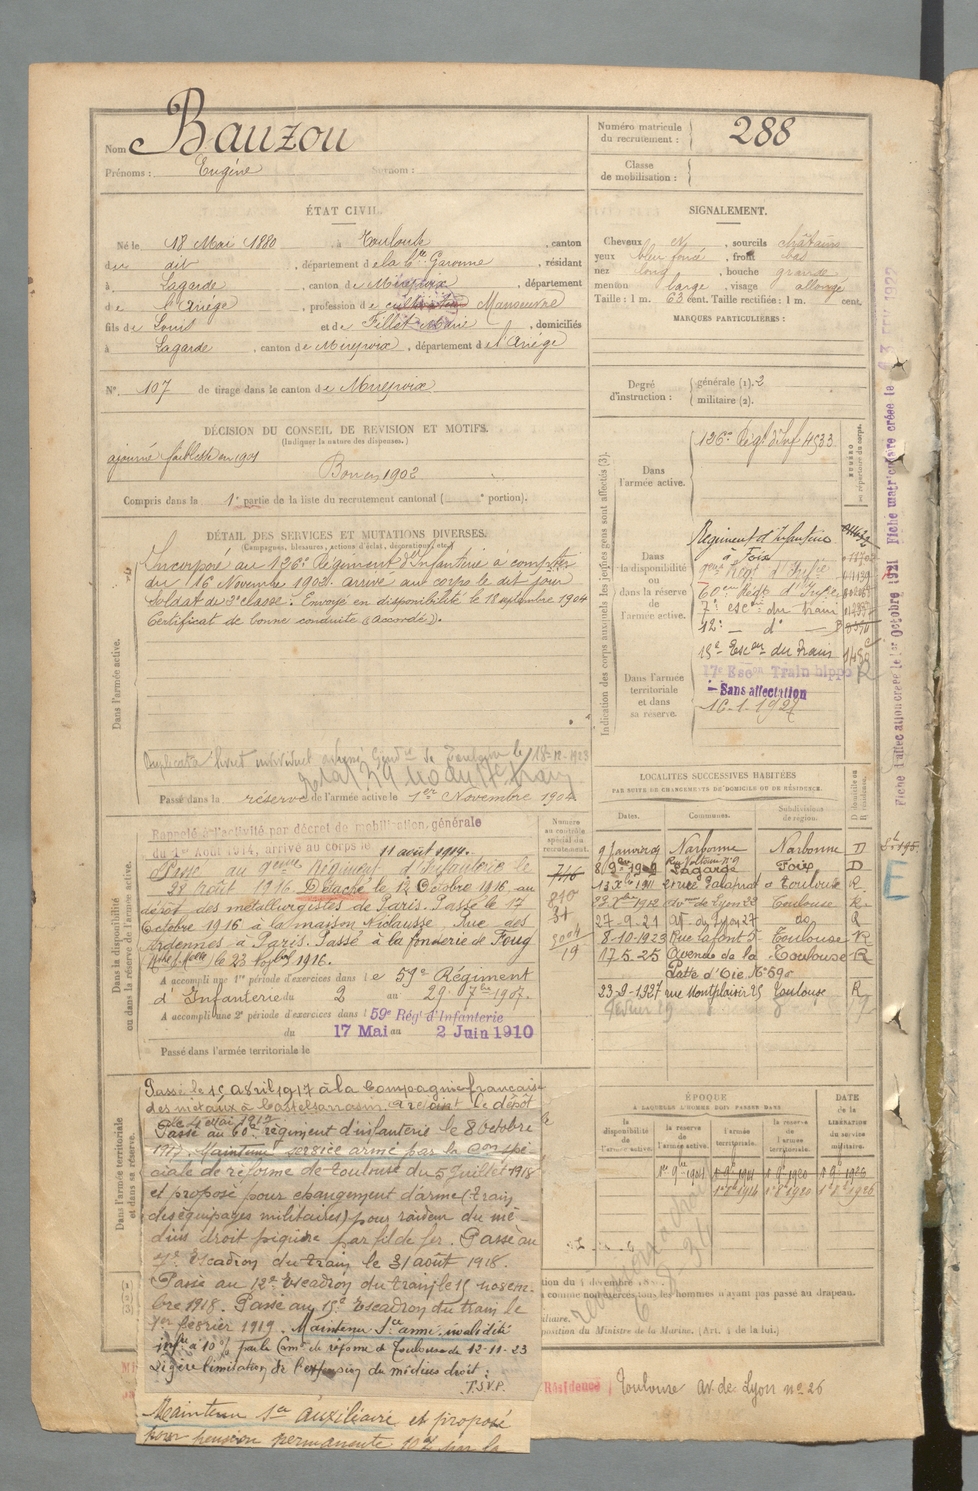 Nom Bauzou
Prénoms : Eugène Surnom :
Numéro matricule du recrutement : 288
Classe de mobilisation :
ÉTAT CIVIL.
Né le 18 Mai 1880 à Toulouse, canton
dudit, département de la Hte Garonne, résidant
à Lagarde, canton de Mirepoix, département
de l'Ariège, profession de cultivateur Manoeuvre
fils de Louis et de Fillet Marie, domiciliés
à Lagarde, canton de Mirepoix, département de l'Ariège
N° 107 de tirage dans le canton de Mirepoix
SIGNALEMENT.
Cheveux N, sourcils châtains
yeux bleu foncé, front bas
nez long, bouche grande
menton large, visage allongé
Taille : 1 m. 63 cent. Taille rectifiée : 1 m. cent.
MARQUES PARTICULIÈRES :
Degré d'instruction : générale (1). 2
militaire (2).
DÉCISION DU CONSEIL DE REVISION ET MOTIFS.
(Indiquer la nature des dispenses.)
ajourné faiblesse en 1901
Bon en 1902
Compris dans la 1e partie de la liste du recrutement cantonal ( e portion).
DÉTAIL DES SERVICES ET MUTATIONS DIVERSES.
(Campagnes, blessures, actions d'éclat, décorations, etc.)
Dans l'armée active.
Incorporé au 126e Régiment d'Infanterie à compter
du 16 Novembre 1902. arrivé au corps le dit jour
Soldat de 2e classe. Envoyé en disponibilité le 18 septembre 1904
Certificat de bonne conduite (Accordé).
Duplicata livret individuel adressé Gendie de Toulouse le 18-12-1923
Passé dans la réserve de l'armée active le 1er Novembre 1904
Indication des corps auxquels les jeunes gens sont affectés (3).
NUMÉRO au répertoire du corps.
Dans l'armée active.
126e Régt d'Inf 4533
Dans la disponibilité ou dans la réserve de l'armée active.
Régiment d'Infanterie
à Foix
9ème Régt d'Infie
60ème Régt d'Infie
7e escon du train
12e — do —
15e Escon du Train
17e Escon Train hippo
Dans l'armée territoriale et dans sa réserve.
Sans affectation
10-1-1927
Fiche d'affectation créée le 1er Octobre 1921 Fiche matriculaire créée le
Dans la disponibilité ou dans la réserve de l'armée active.
Rappelé à l'activité par décret de mobilisation générale
du 1er Août 1914, arrivé au corps le 11 août 1914.
Passé au 9eme Régiment d'Infanterie le
28 Août 1916 Détaché le 12 Octobre 1916 au
dépôt des métallurgistes de Paris. Passé le 17
Octobre 1916 à la maison Niclausse Rue des
Ardennes à Paris. Passé à la fonderie de Foug
le 23 1916.
A accompli une 1re période d'exercices dans le 59e Régiment
d'Infanterie du 2 au 29 7bre 1907.
A accompli une 2e période d'exercices dans le 59e Rég. d'Infanterie
du 17 Mai au 2 Juin 1910
Passé dans l'armée territoriale le
Numéro au contrôle spécial du recrutement.
716
810
31
3004
19
LOCALITÉS SUCCESSIVES HABITÉES
PAR SUITE DE CHANGEMENTS DE DOMICILE OU DE RÉSIDENCE.
Dates. Communes. Subdivisions de région. D domicile ou R résidence.
9 Janvier 09 Narbonne Narbonne D
8 9bre 1909 Lagarde Foix D
1911 2 rue Palaprat Toulouse R.
1912 de Lyon 22 Toulouse R.
27-9-21 av. de Lyon 27 do R
8-10-1923 Rue Lafont 5 Toulouse R
17-5-25 Avenue de la Toulouse R
Patte d'Oie No 59
23-9-1927 rue Montplaisir 25 Toulouse R
Dans l'armée territoriale et dans sa réserve.
Passé le 15 Avril 1917 à la Compagnie française
des métaux à Castelsarrasin. A rejoint le dépôt
le 4 Mai 1917
Passé au 60e régiment d'infanterie le 8 Octobre
1917. Maintenu service armé par la Con spé-
ciale de réforme de Toulouse du 5 Juillet 1918
et proposé pour changement d'arme (train
des équipages militaires) pour raideur du mé-
dius droit piqûre par fil de fer. Passé au
7e Escadron du train le 31 août 1918.
Passé au 12e Escadron du train le 15 novem-
bre 1918. Passé au 15e Escadron du train le
1er février 1919. Maintenu Sce armé invalidité
infre à 10% par la Comon de réforme de Toulouse du 12-11-23
Légère limitation de l'extension du médius droit.
T.S.V.P.
Maintenu Sce auxiliaire et proposé
pour pension permanente 10% par la
ÉPOQUE
À LAQUELLE L'HOMME DOIT PASSER DANS
la disponibilité de l'armée active. la réserve de l'armée active. l'armée territoriale. la réserve de l'armée territoriale.
DATE de la LIBÉRATION du service militaire.
1er 9bre 1904
tion du 4 décembre 18
comme non exercés tous les hommes n'ayant pas passé au drapeau.
position du Ministre de la Marine. (Art. 4 de la loi.)
Résidence Toulouse av. de Lyon no 26